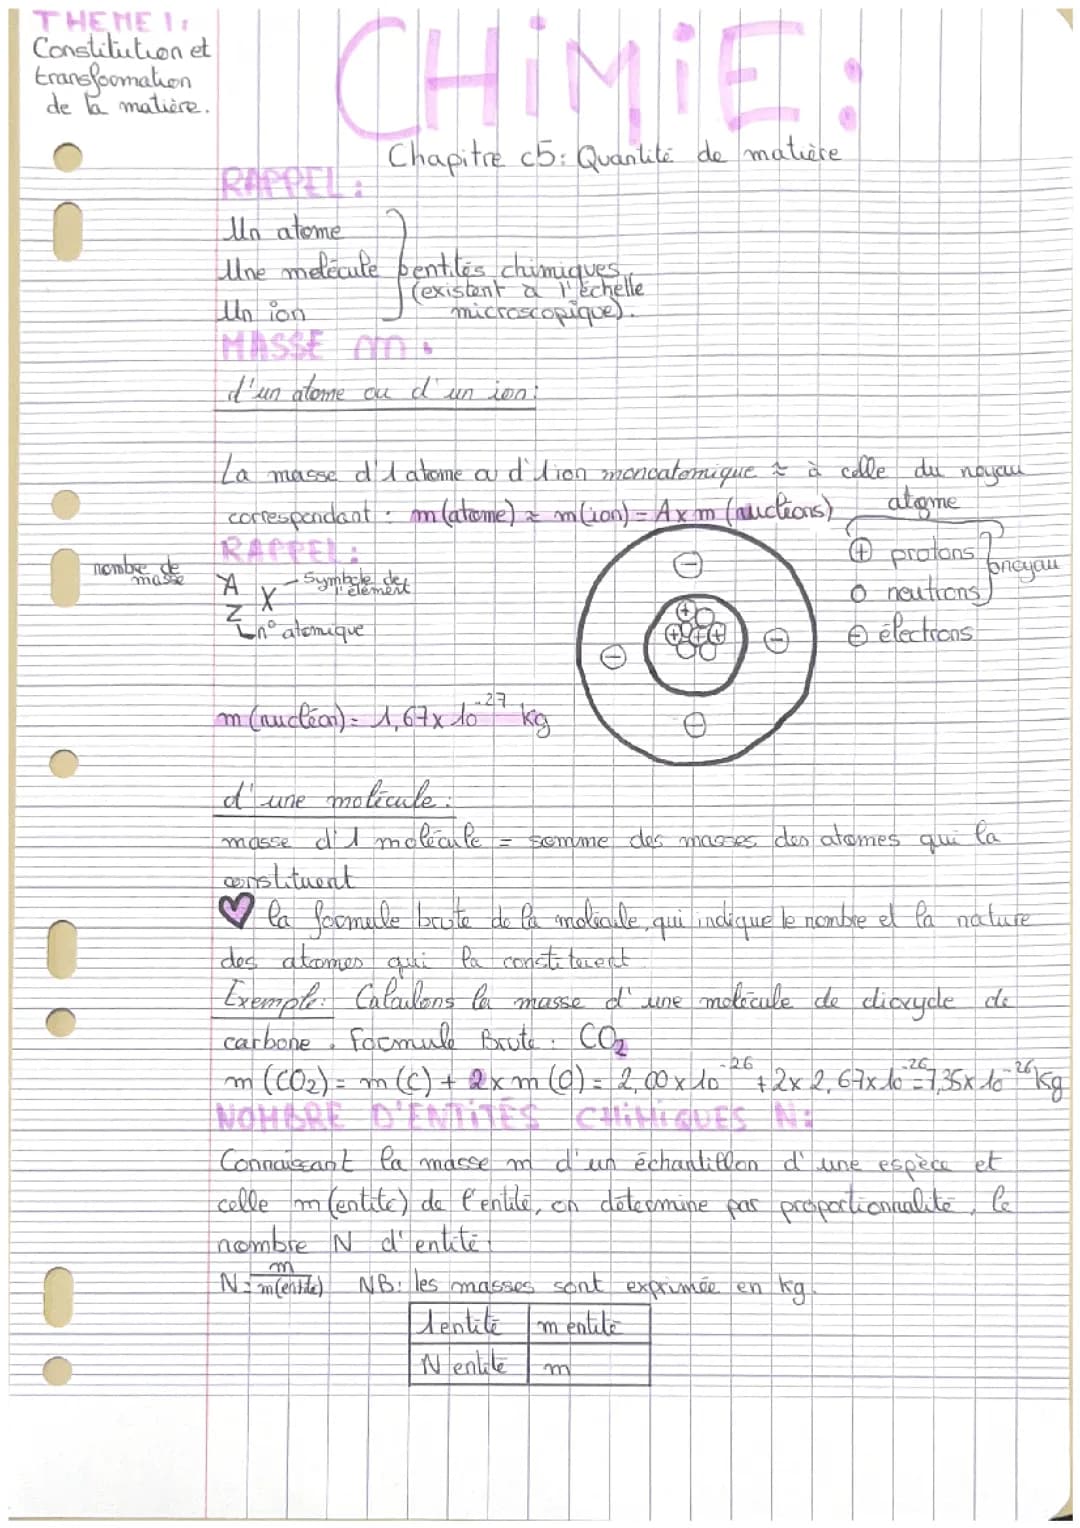 THEME 1:
Constitution et
transformation
de la matière.
CHiMiE:
Chapitre c5: Quantité de matière
RAPPEL:
Un atome
Une molécule
Un ion
entités chimiques
(existent à l'échelle
microscopique).
MASSE m:
d'un atome ou d'un ion:
La masse d'1 atome ou d'1 ion monoatomique ≈ à celle du noyau
correspondant: m(atome) ≈ m(ion) = A x m (nuclions)
RAPPEL:
nombre de
masse
A
Z
X
Symbole de
l'élément
n° atomique
atome
⊕ protons
O neutrons
noyau
⊖ électrons
m (nucléon) = 1,67 x 10⁻²⁷ kg
d'une molécule:
masse d'1 molécule = somme des masses des atomes qui la
constituent
la formule brute de la molécule, qui indique le nombre et la nature
des atomes qui la constituent
Exemple: Calculons la masse d'une molécule de dioxyde de
carbone. Formule Brute: CO₂
m (CO₂) = m (C) + 2 x m (O) = 2,00 x 10⁻²⁶ + 2 x 2,67 x 10⁻²⁶ = 7,35 x 10⁻²⁶ kg
NOMBRE D'ENTiTÉS CHiMiQUES N:
Connaissant la masse m d'un échantillon d'une espèce et
celle m (entité) de l'entité, on détermine par proportionnalité, le
nombre N d'entité.
N = m/m(entité) NB: les masses sont exprimée en kg.
1 entité m entité
N entité m